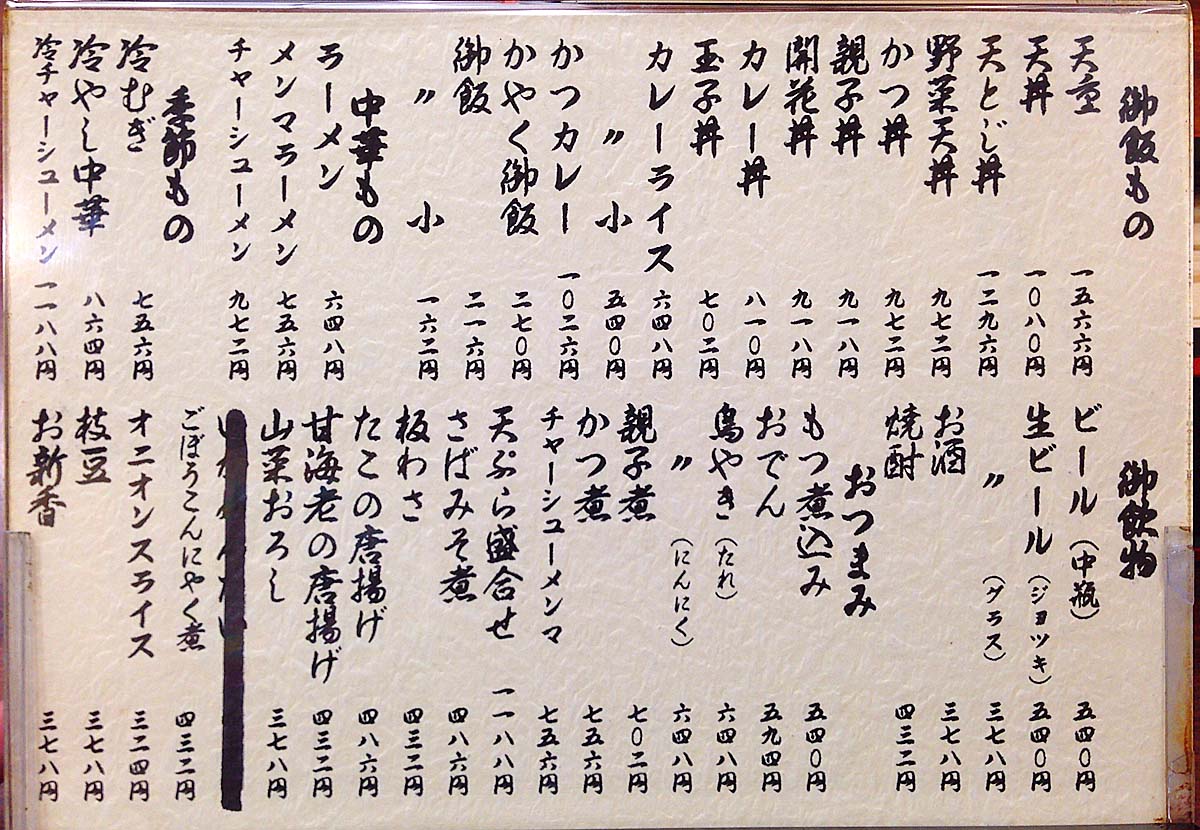 御飯もの
天重 一五六六円
天丼 一〇八〇円
天とじ丼 一二九六円
野菜天丼 九七二円
かつ丼 九七二円
親子丼 九一八円
開花丼 九一八円
カレー丼 八一〇円
玉子丼 七〇二円
カレーライス 六四八円
〃 小 五四〇円
かつカレー 一〇二六円
かやく御飯 二七〇円
御飯 二一六円
〃 小 一六二円
中華もの
ラーメン 六四八円
メンマラーメン 七五六円
チャーシューメン 九七二円
季節もの
冷むぎ 七五六円
冷やし中華 八六四円
冷チャーシューメン 一一八八円
御飲物
ビール（中瓶） 五四〇円
生ビール（ジョッキ） 五四〇円
〃（グラス） 三七八円
お酒 三七八円
焼酎 四三二円
おつまみ
もつ煮込み 五四〇円
おでん 五九四円
鳥やき（たれ） 六四八円
〃（にんにく） 六四八円
親子煮 七〇二円
かつ煮 七五六円
チャーシューメンマ 七五六円
天ぷら盛合せ 一一八八円
さばみそ煮 四八六円
板わさ 四三二円
たこの唐揚げ 四八六円
甘海老の唐揚げ 四三二円
山菜おろし 三七八円
ごぼうこんにゃく煮 四三二円
オニオンスライス 三二四円
枝豆 三七八円
お新香 三七八円